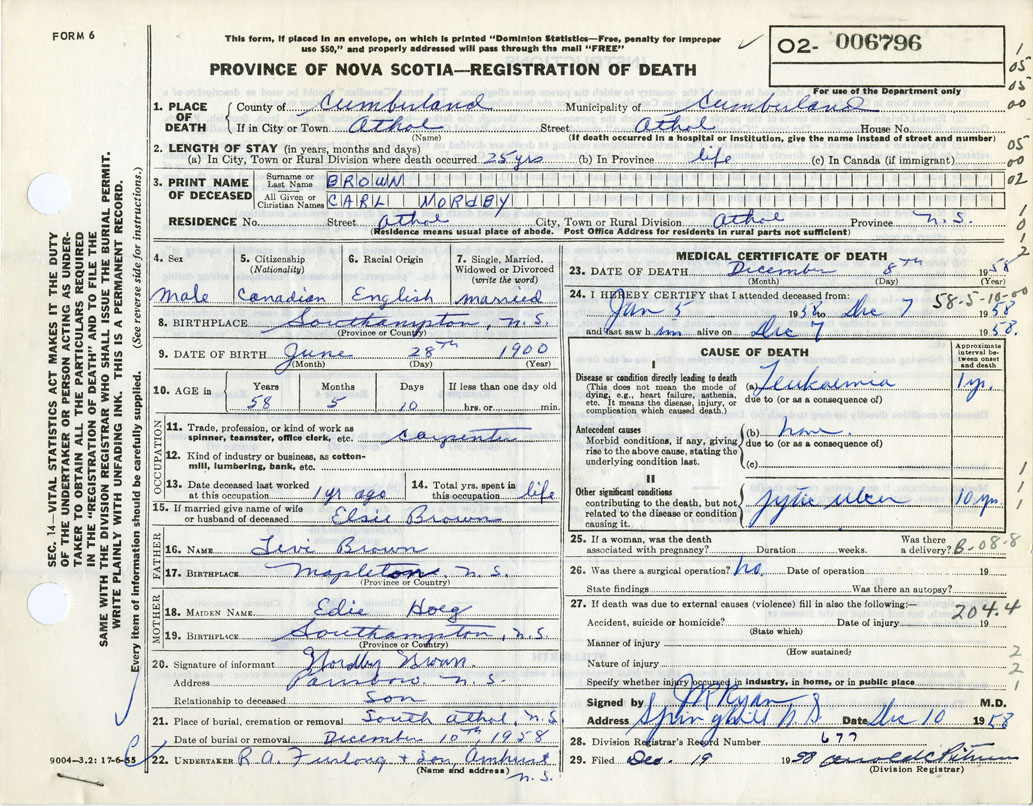 FORM 6
This form, if placed in an envelope, on which is printed "Dominion Statistics—Free, penalty for improper
use $50," and properly addressed will pass through the mail "FREE"
02- 006796
For use of the Department only
PROVINCE OF NOVA SCOTIA—REGISTRATION OF DEATH
1. PLACE OF DEATH { County of Cumberland Municipality of Cumberland
If in City or Town Athol Street Athol House No.
(Name) (If death occurred in a hospital or institution, give the name instead of street and number)
2. LENGTH OF STAY (in years, months and days)
(a) In City, Town or Rural Division where death occurred 25 yrs (b) In Province life (c) In Canada (if immigrant)
3. PRINT NAME OF DECEASED { Surname or Last Name BROWN
All Given or Christian Names CARL MORDBY
RESIDENCE No. Street Athol City, Town or Rural Division Athol Province N.S.
(Residence means usual place of abode. Post Office Address for residents in rural parts not sufficient)
4. Sex Male
5. Citizenship (Nationality) Canadian
6. Racial Origin English
7. Single, Married, Widowed or Divorced (write the word) married
8. BIRTHPLACE Southampton, N.S.
(Province or Country)
9. DATE OF BIRTH June 28th 1900
(Month) (Day) (Year)
10. AGE in Years 58 Months 5 Days 10 If less than one day old hrs. or min.
OCCUPATION
11. Trade, profession, or kind of work as spinner, teamster, office clerk, etc. Carpenter
12. Kind of industry or business, as cotton-mill, lumbering, bank, etc.
13. Date deceased last worked at this occupation 1 yr ago
14. Total yrs. spent in this occupation life
15. If married give name of wife or husband of deceased Elsie Brown
FATHER
16. NAME Levi Brown
17. BIRTHPLACE Mapleton, N.S.
(Province or Country)
MOTHER
18. MAIDEN NAME Edie Hoeg
19. BIRTHPLACE Southampton, N.S.
(Province or Country)
20. Signature of informant Nordby Brown.
Address Parrsboro N.S.
Relationship to deceased Son
21. Place of burial, cremation or removal South Athol, N.S.
Date of burial or removal December 10th 1958
22. UNDERTAKER R.A. Furlong + Son, Amherst
(Name and address) N.S.
MEDICAL CERTIFICATE OF DEATH
23. DATE OF DEATH December 8th 1958
(Month) (Day) (Year)
24. I HEREBY CERTIFY that I attended deceased from: 58-5-10-00
Jan 5 1958 to Dec 7 1958
and last saw h im alive on Dec 7 1958.
CAUSE OF DEATH
Approximate interval between onset and death
I
Disease or condition directly leading to death (a) Leukaemia 1 yr.
(This does not mean the mode of dying, e.g., heart failure, asthenia, etc. It means the disease, injury, or complication which caused death.)
due to (or as a consequence of)
Antecedent causes (b) none.
Morbid conditions, if any, giving rise to the above cause, stating the underlying condition last.
due to (or as a consequence of)
(c)
II
Other significant conditions ulcer 10 yr.
contributing to the death, but not related to the disease or condition causing it.
25. If a woman, was the death associated with pregnancy? Duration weeks. Was there a delivery? B-08-8
26. Was there a surgical operation? no. Date of operation 19
State findings Was there an autopsy?
27. If death was due to external causes (violence) fill in also the following:— 204.4
Accident, suicide or homicide? Date of injury 19
(State which)
Manner of injury
(How sustained)
Nature of injury
Specify whether injury occurred in industry, in home, or in public place
Signed by J R Ryan M.D.
Address Springhill N S Date Dec 10 1958
28. Division Registrar's Record Number 677
29. Filed Dec. 19 1958
(Division Registrar)
SEC. 14—VITAL STATISTICS ACT MAKES IT THE DUTY
OF THE UNDERTAKER OR PERSON ACTING AS UNDER-
TAKER TO OBTAIN ALL THE PARTICULARS REQUIRED
IN THE "REGISTRATION OF DEATH" AND TO FILE THE
SAME WITH THE DIVISION REGISTRAR WHO SHALL ISSUE THE BURIAL PERMIT.
WRITE PLAINLY WITH UNFADING INK. THIS IS A PERMANENT RECORD.
Every item of information should be carefully supplied. (See reverse side for instructions.)
9004—3.2: 17-6-55
1
05
05
00
05
00
02
1
0
1
2
1
1
1
2
2
1